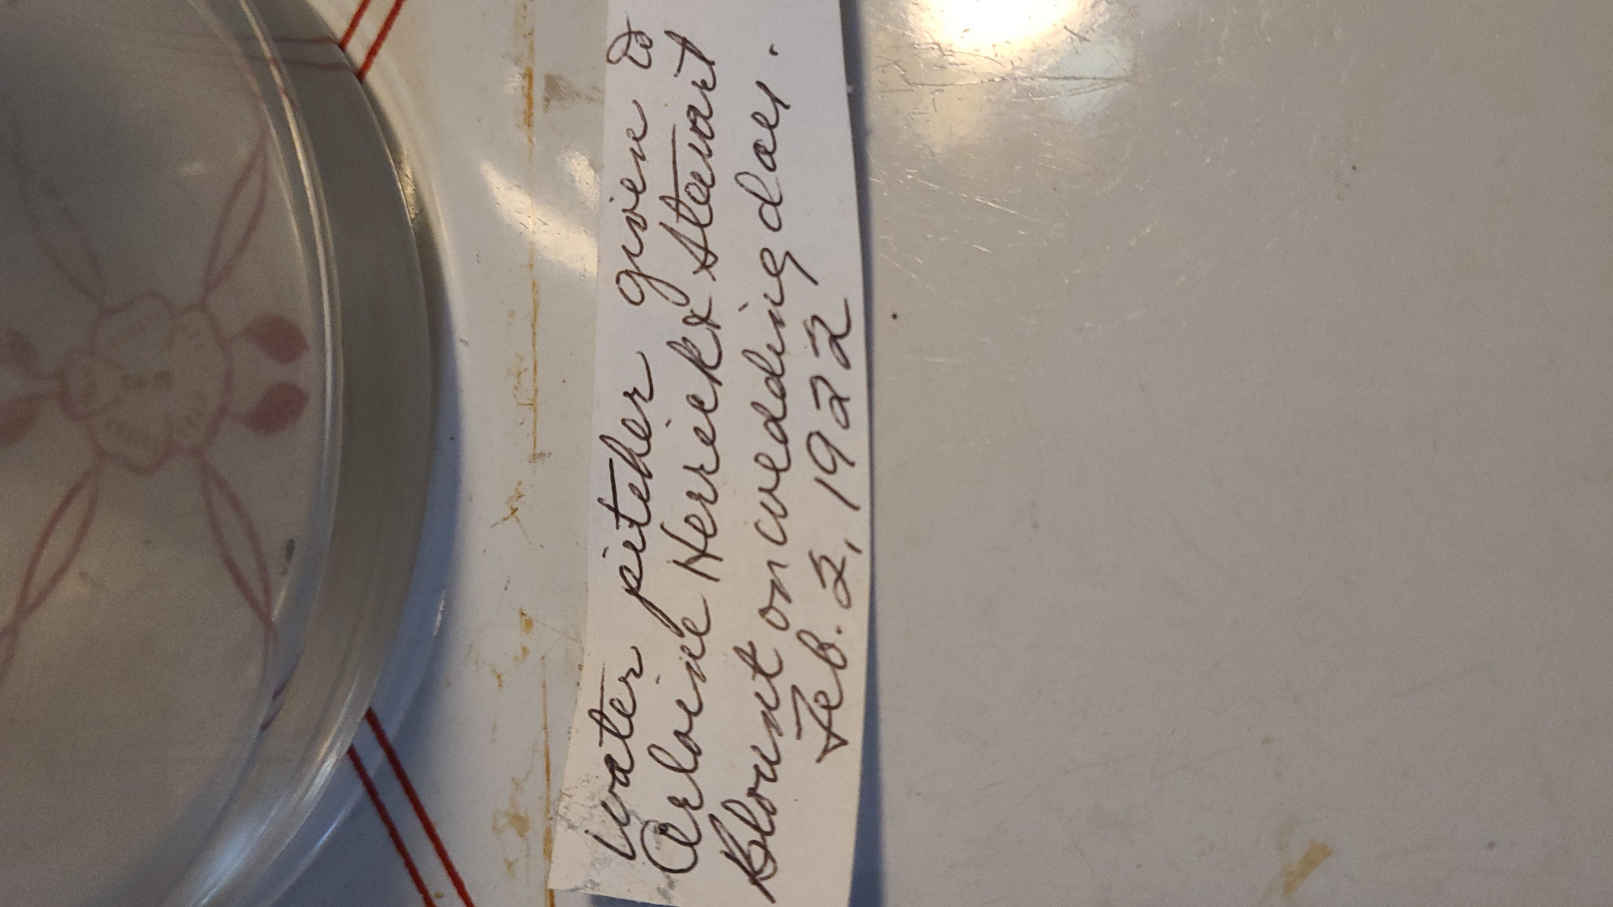 Water pitcher given to
Arloine Herrick & Stewart
Blount on wedding day.
Feb. 2, 1922